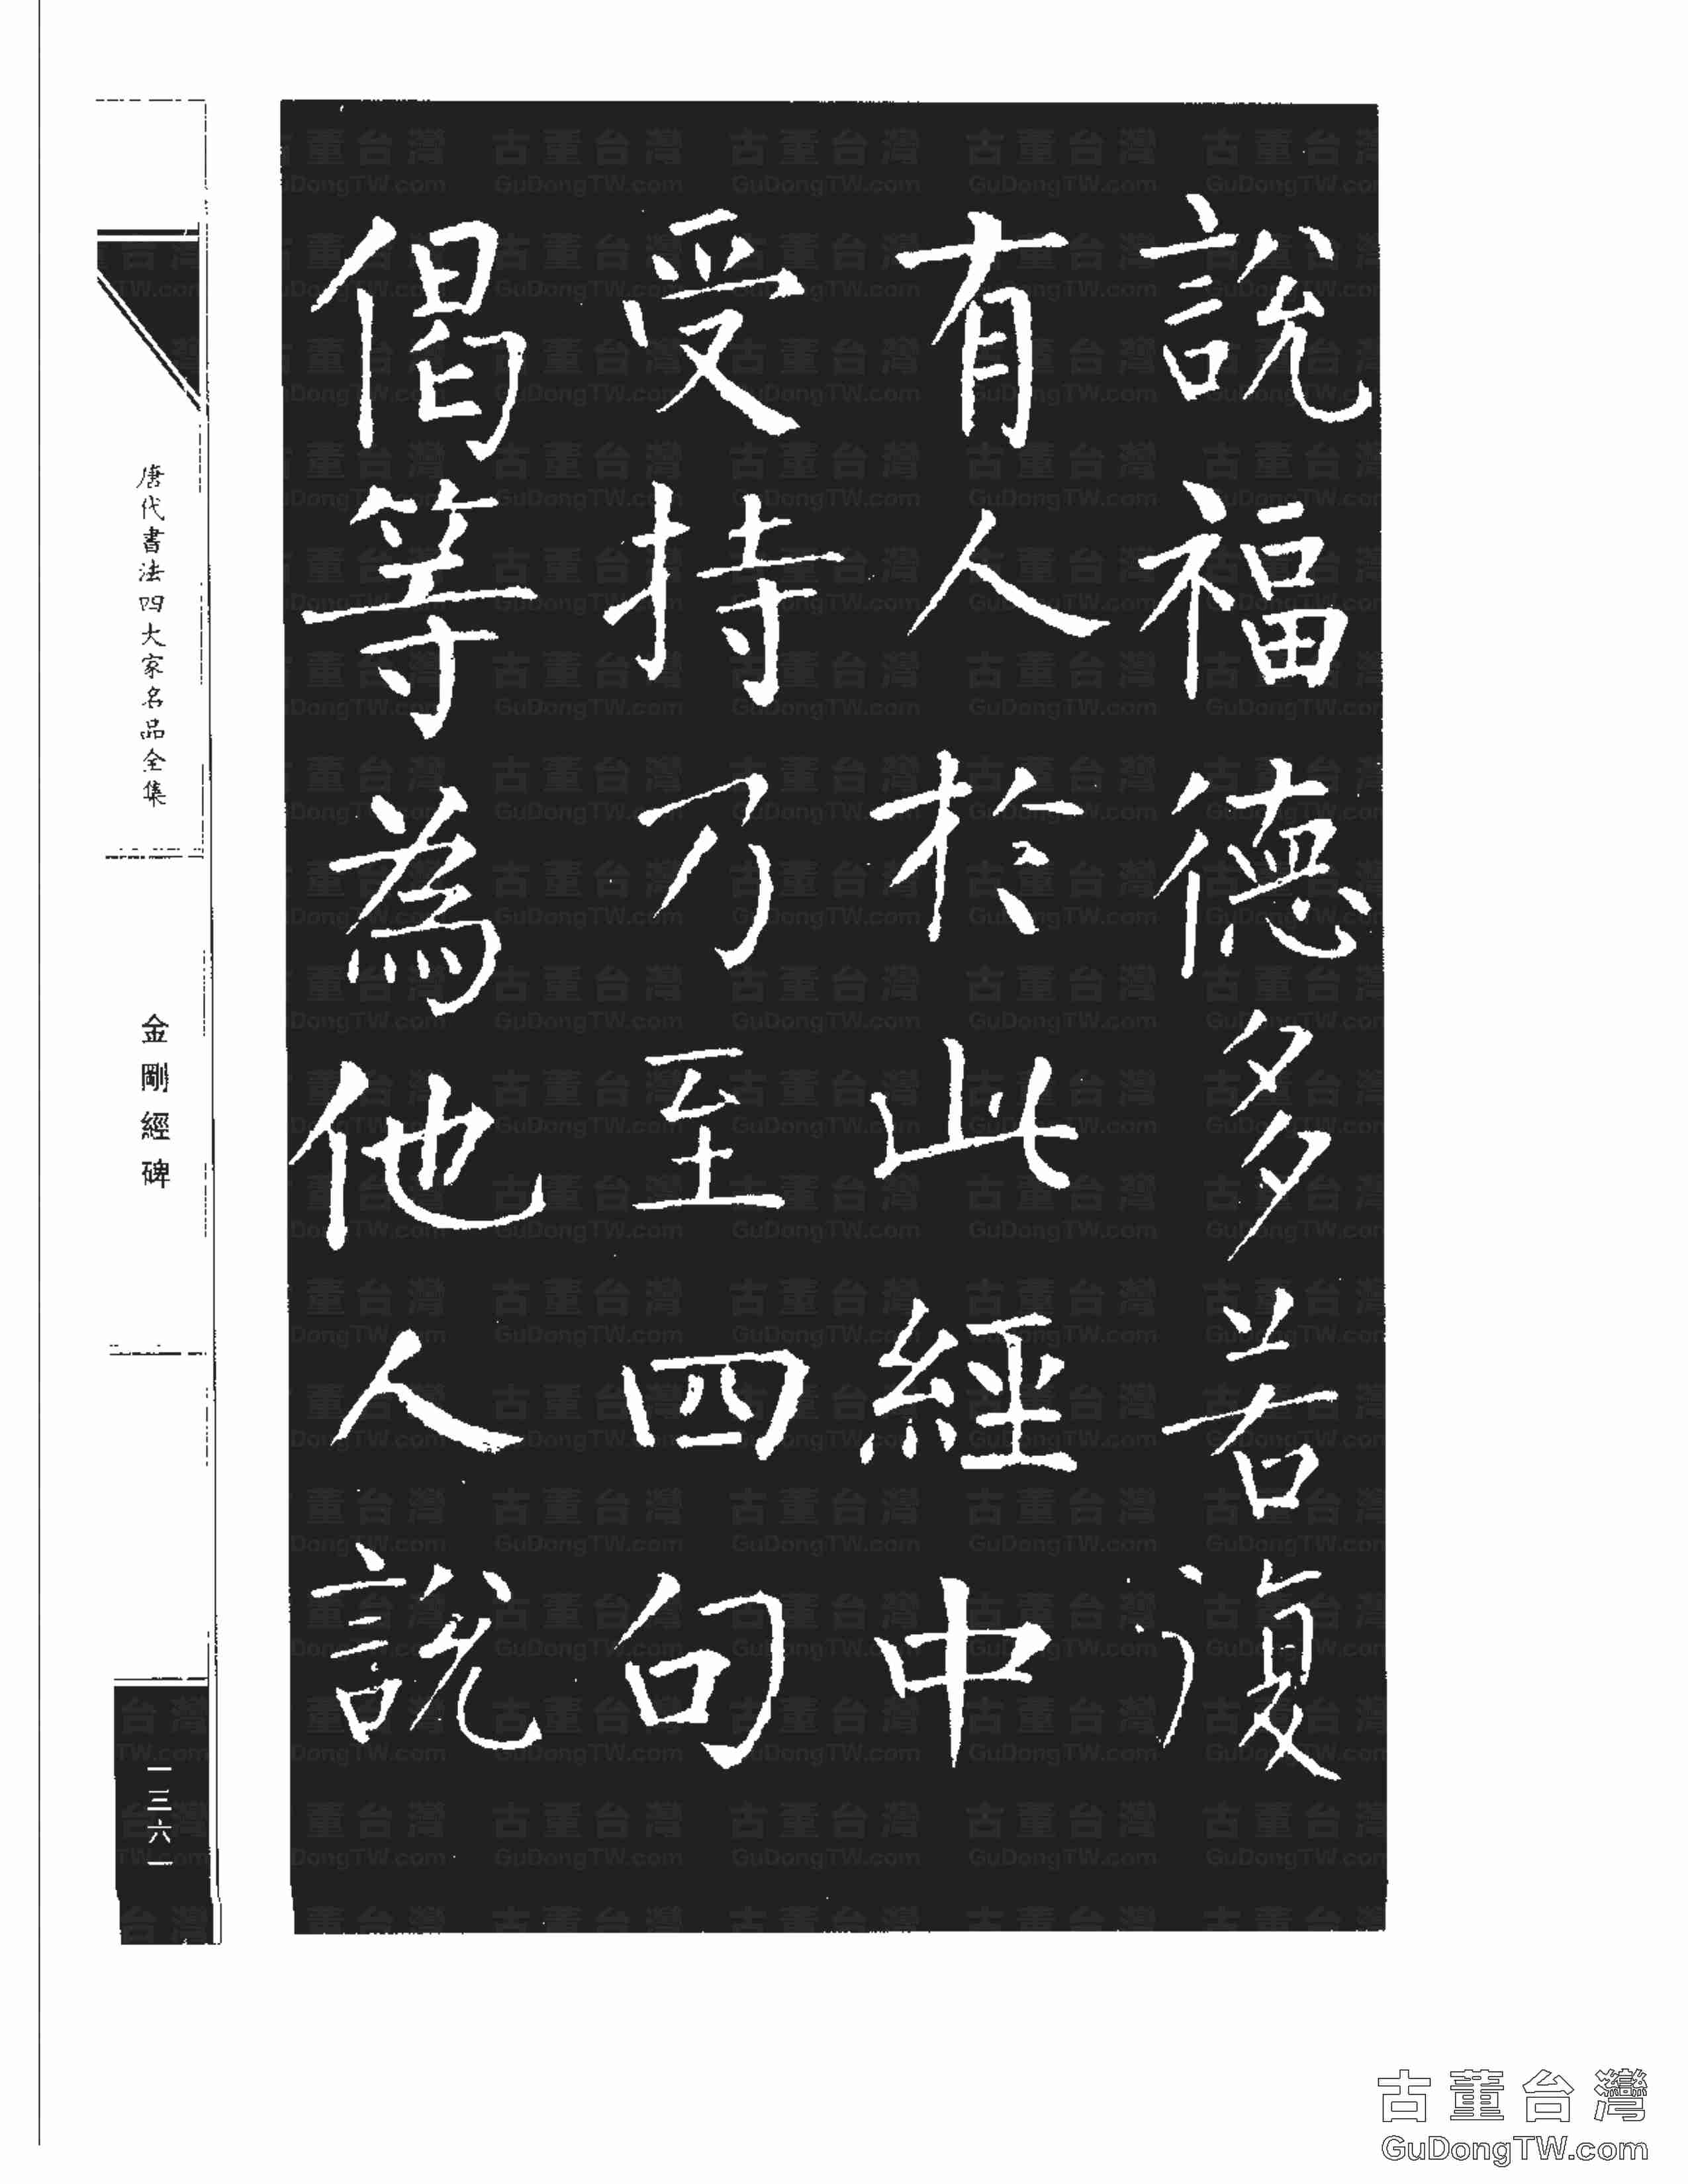 說福德多若復
有人於此經中
受持乃至四句
偈等為他人說
唐代書法四大家名品全集
金剛經碑
一三六一
古董台灣
GuDongTW.com